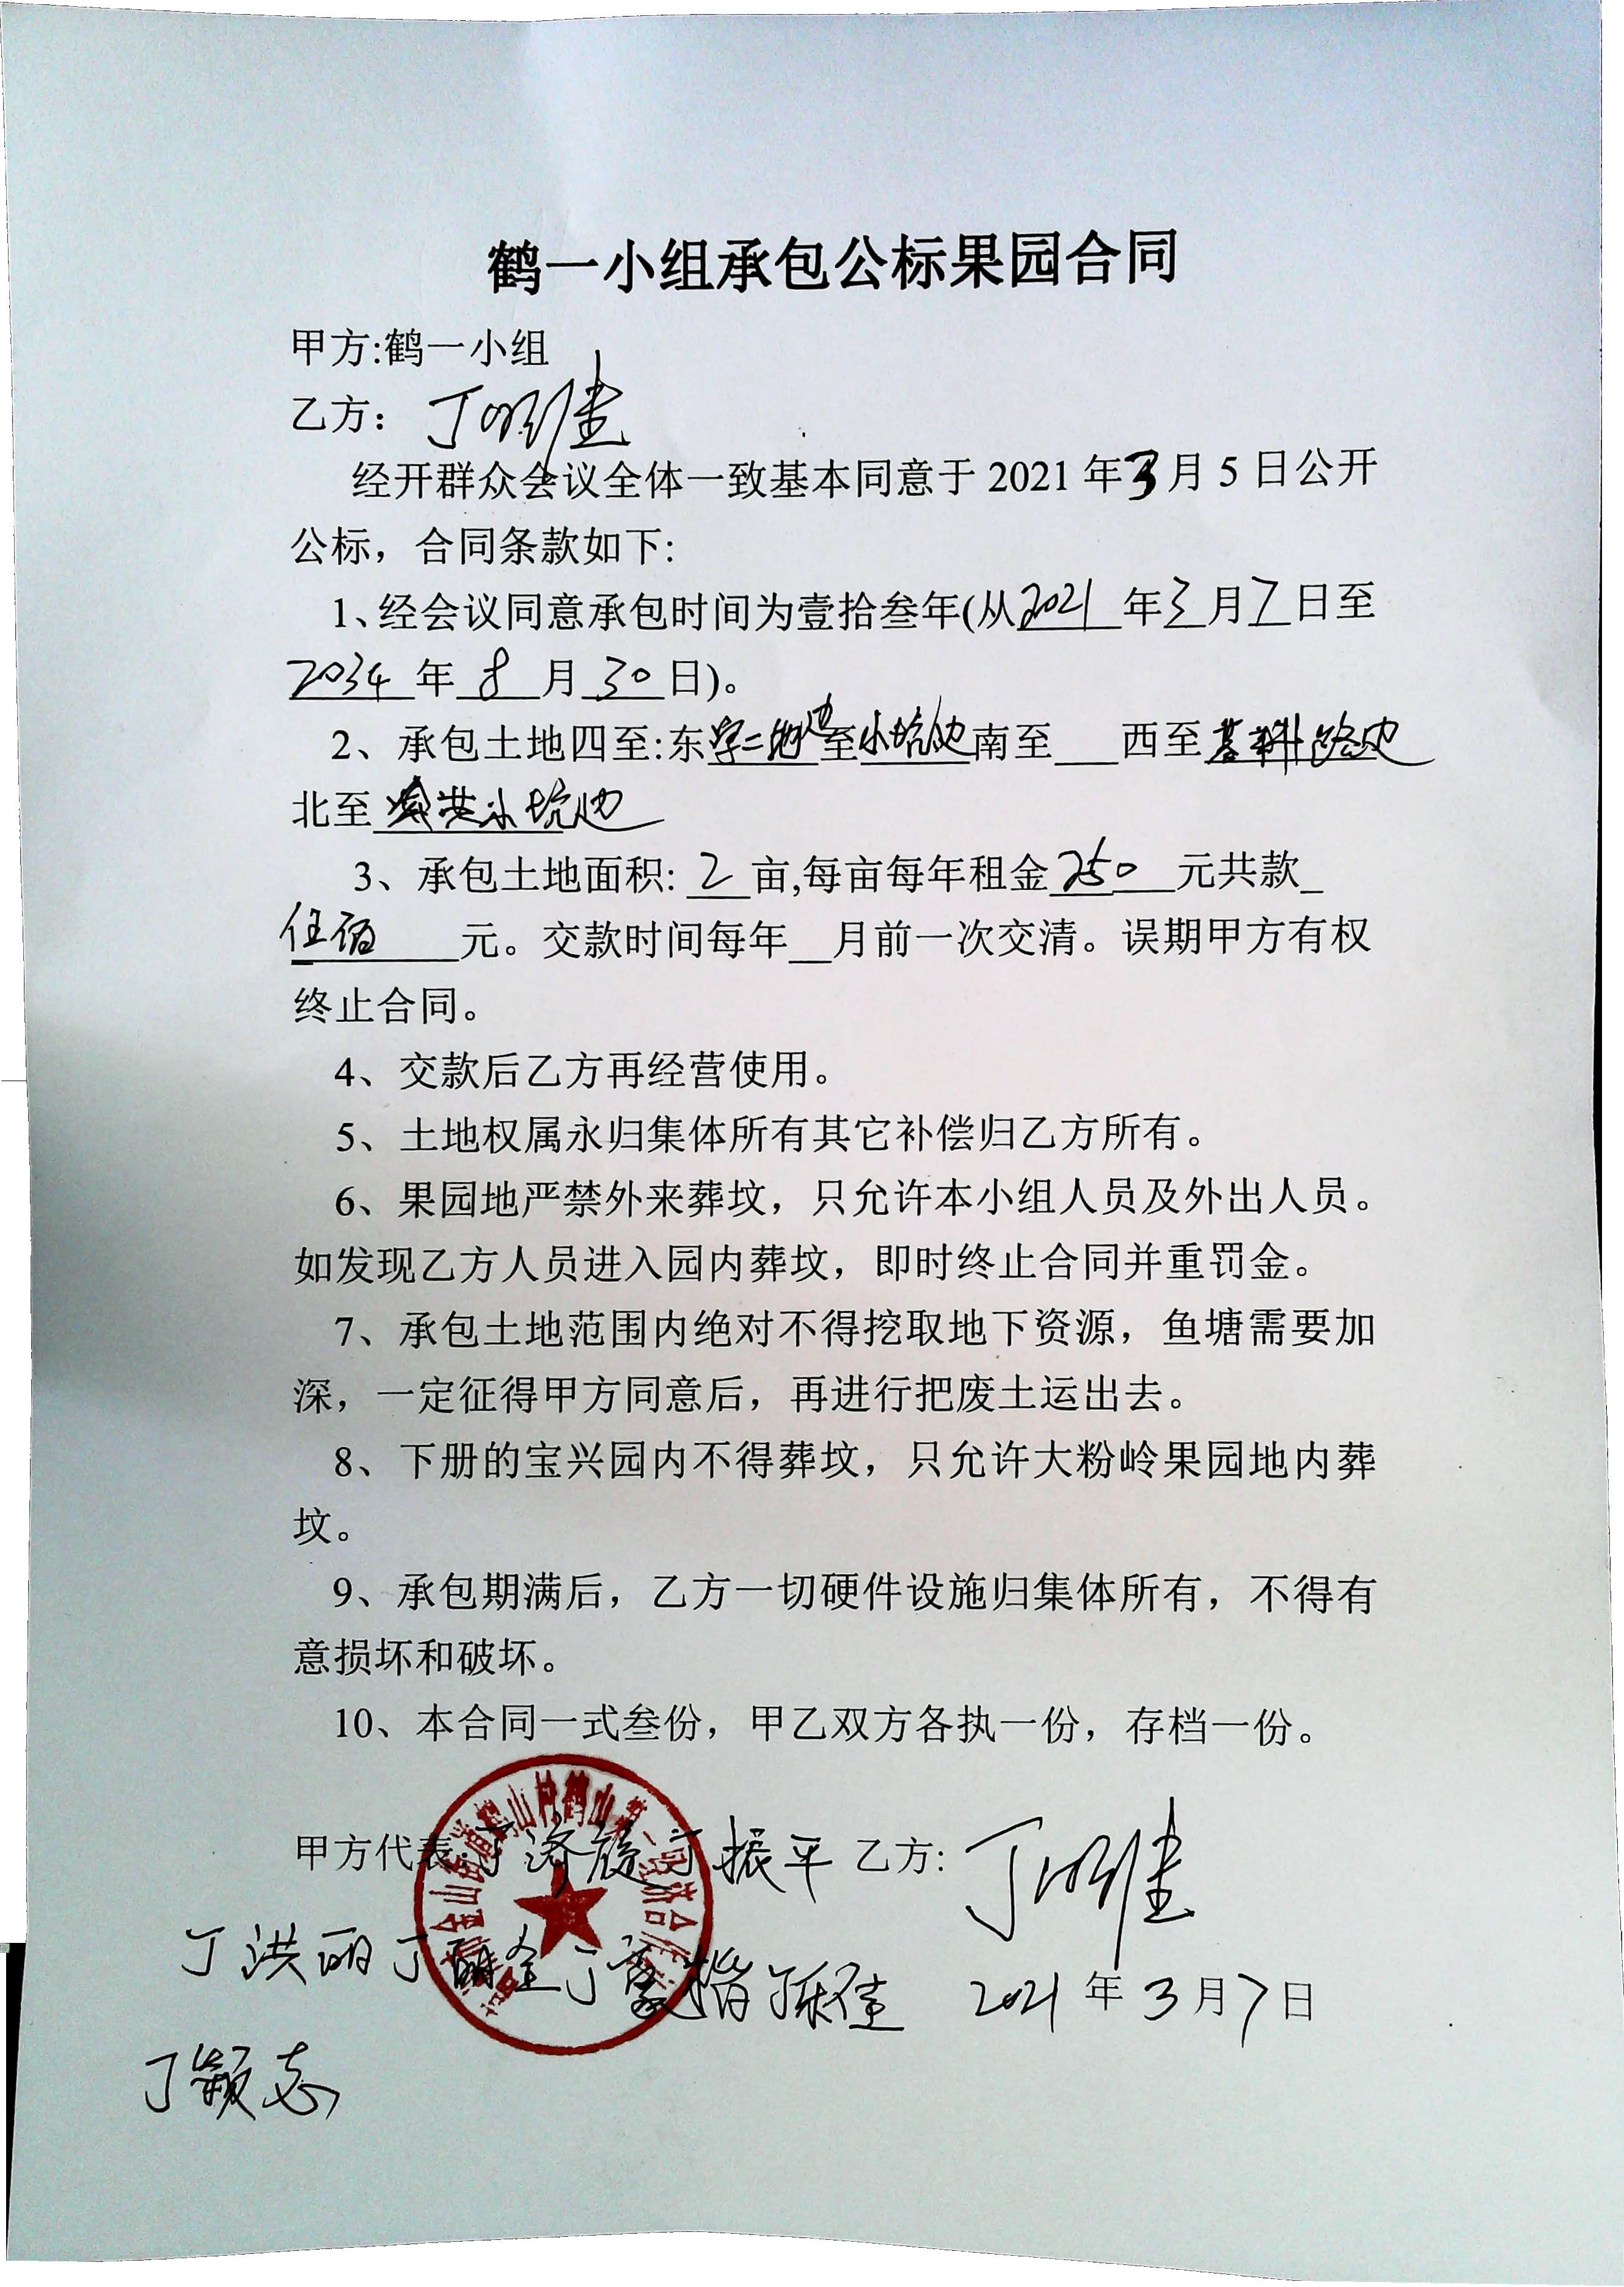 鹤一小组承包公标果园合同
甲方:鹤一小组
乙方：丁明佳
经开群众会议全体一致基本同意于 2021 年3月 5 日公开
公标，合同条款如下:
1、经会议同意承包时间为壹拾叁年(从2021 年3月7日至
2034 年 8 月 30 日)。
2、承包土地四至:东 至小坑边南至___西至 路边
北至 小坑边
3、承包土地面积: 2 亩,每亩每年租金250 元共款_
伍佰 元。交款时间每年__月前一次交清。误期甲方有权
终止合同。
4、交款后乙方再经营使用。
5、土地权属永归集体所有其它补偿归乙方所有。
6、果园地严禁外来葬坟，只允许本小组人员及外出人员。
如发现乙方人员进入园内葬坟，即时终止合同并重罚金。
7、承包土地范围内绝对不得挖取地下资源，鱼塘需要加
深，一定征得甲方同意后，再进行把废土运出去。
8、下册的宝兴园内不得葬坟，只允许大粉岭果园地内葬
坟。
9、承包期满后，乙方一切硬件设施归集体所有，不得有
意损坏和破坏。
10、本合同一式叁份，甲乙双方各执一份，存档一份。
甲方代表: 丁振平 乙方: 丁明佳
丁洪丽 2021 年 3 月 7 日
丁颖志